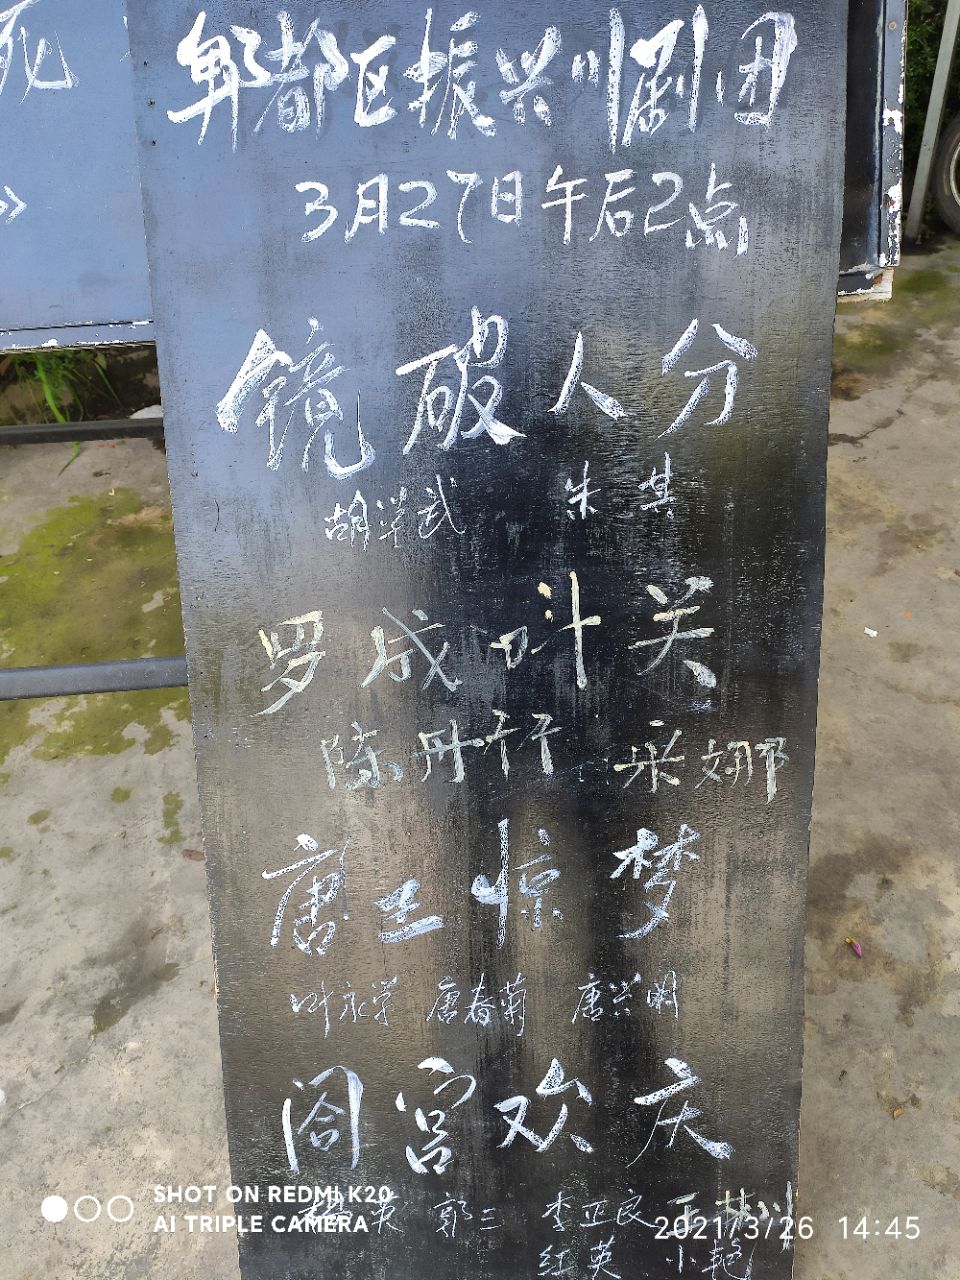 死
》
郫都区振兴川剧团
3月27日午后2点
镜破人分
胡学武 朱其
罗成叫关
陈丹 采娜
唐王惊梦
叶永学 唐春菊 唐兴国
阖宫欢庆
英 郭三 李正良 王
红英 小艳
SHOT ON REDMI K20
AI TRIPLE CAMERA
2021/3/26 14:45